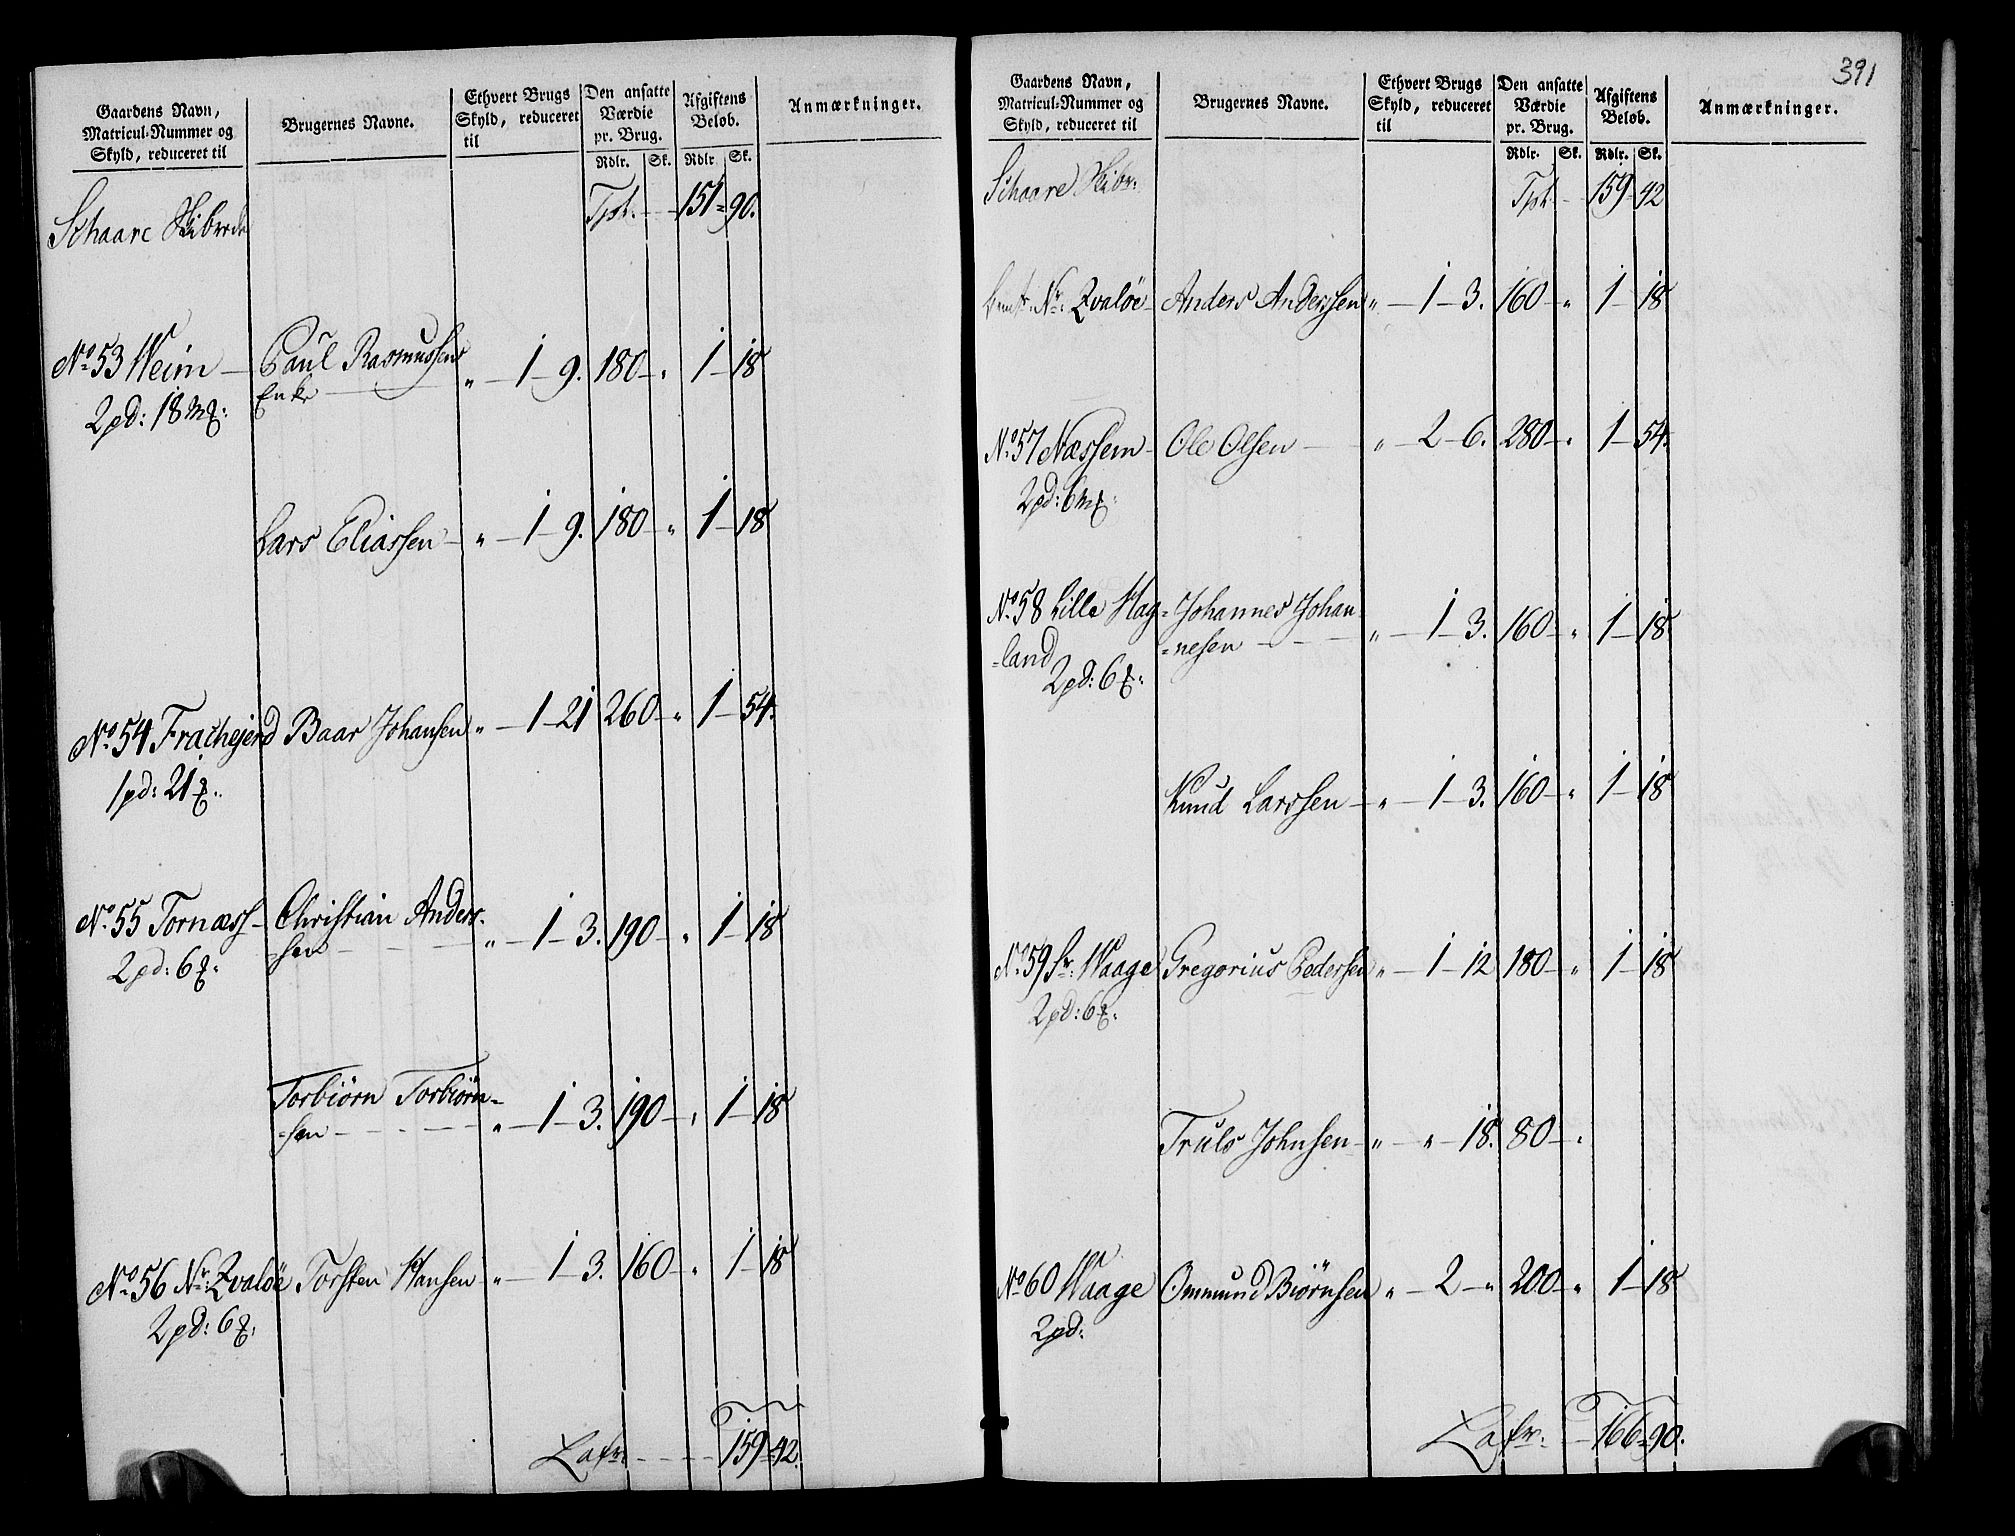 Gaardens Navn, Matricul-Nummer og Skyld, reduceret til | Brugernes Navne. | Ethvert Brugs Skyld, reduceret til | Den ansatte Værdie pr. Brug. Rdlr. Sk. | Afgiftens Beløb. Rdlr. Sk. | Anmærkninger.
Schaare Skibrede Tpt. 151 = 90.
No 53 Weim Paul Rasmussens " 1 9. 180 " 1 18
Enke
2 pd: 18 m
Lars Eliassen " 1 9. 180 " 1 18
No 54 Frachejerd Baar Johansen " 1 21 260 " 1 54.
1 pd: 21
No 55 Tornæss Christian Anders- " 1 3. 190 " 1 18
=sen
2 pd: 6
Torbiörn Torbiörn= " 1 3. 190 " 1 18
=sen
No 56 Nr: Qvaløe Torsten Hansen " 1 3. 160 " 1 18
2 pd: 6
Lafr: 159 = 42.
391
Gaardens Navn, Matricul-Nummer og Skyld, reduceret til | Brugernes Navne. | Ethvert Brugs Skyld, reduceret til | Den ansatte Værdie pr. Brug. Rdlr. Sk. | Afgiftens Beløb. Rdlr. Sk. | Anmærkninger.
Schaare Skibr: Tpt. 159 = 42
Nr: Qvaløe Anders Anderssen " 1 3. 160 " 1 18
No 57 Næssem Ole Olsen " 2 6. 280 " 1 54.
2 pd: 6 m
No 58 Lille Hag= Johannes Johan= " 1 3. 160 " 1 18
=land =nesen
2 pd: 6
Knud Larssen " 1 3. 160 " 1 18
No 59 Sr: Waage Gregorius Pedersen " 1 12 180 " 1 18
2 pd: 6
Truls Johnsen " " 18. 80 "
No 60 Waage Ommund Biørnsen " 2 " 200 " 1 18
2 pd:
Lafr: 166 = 90.